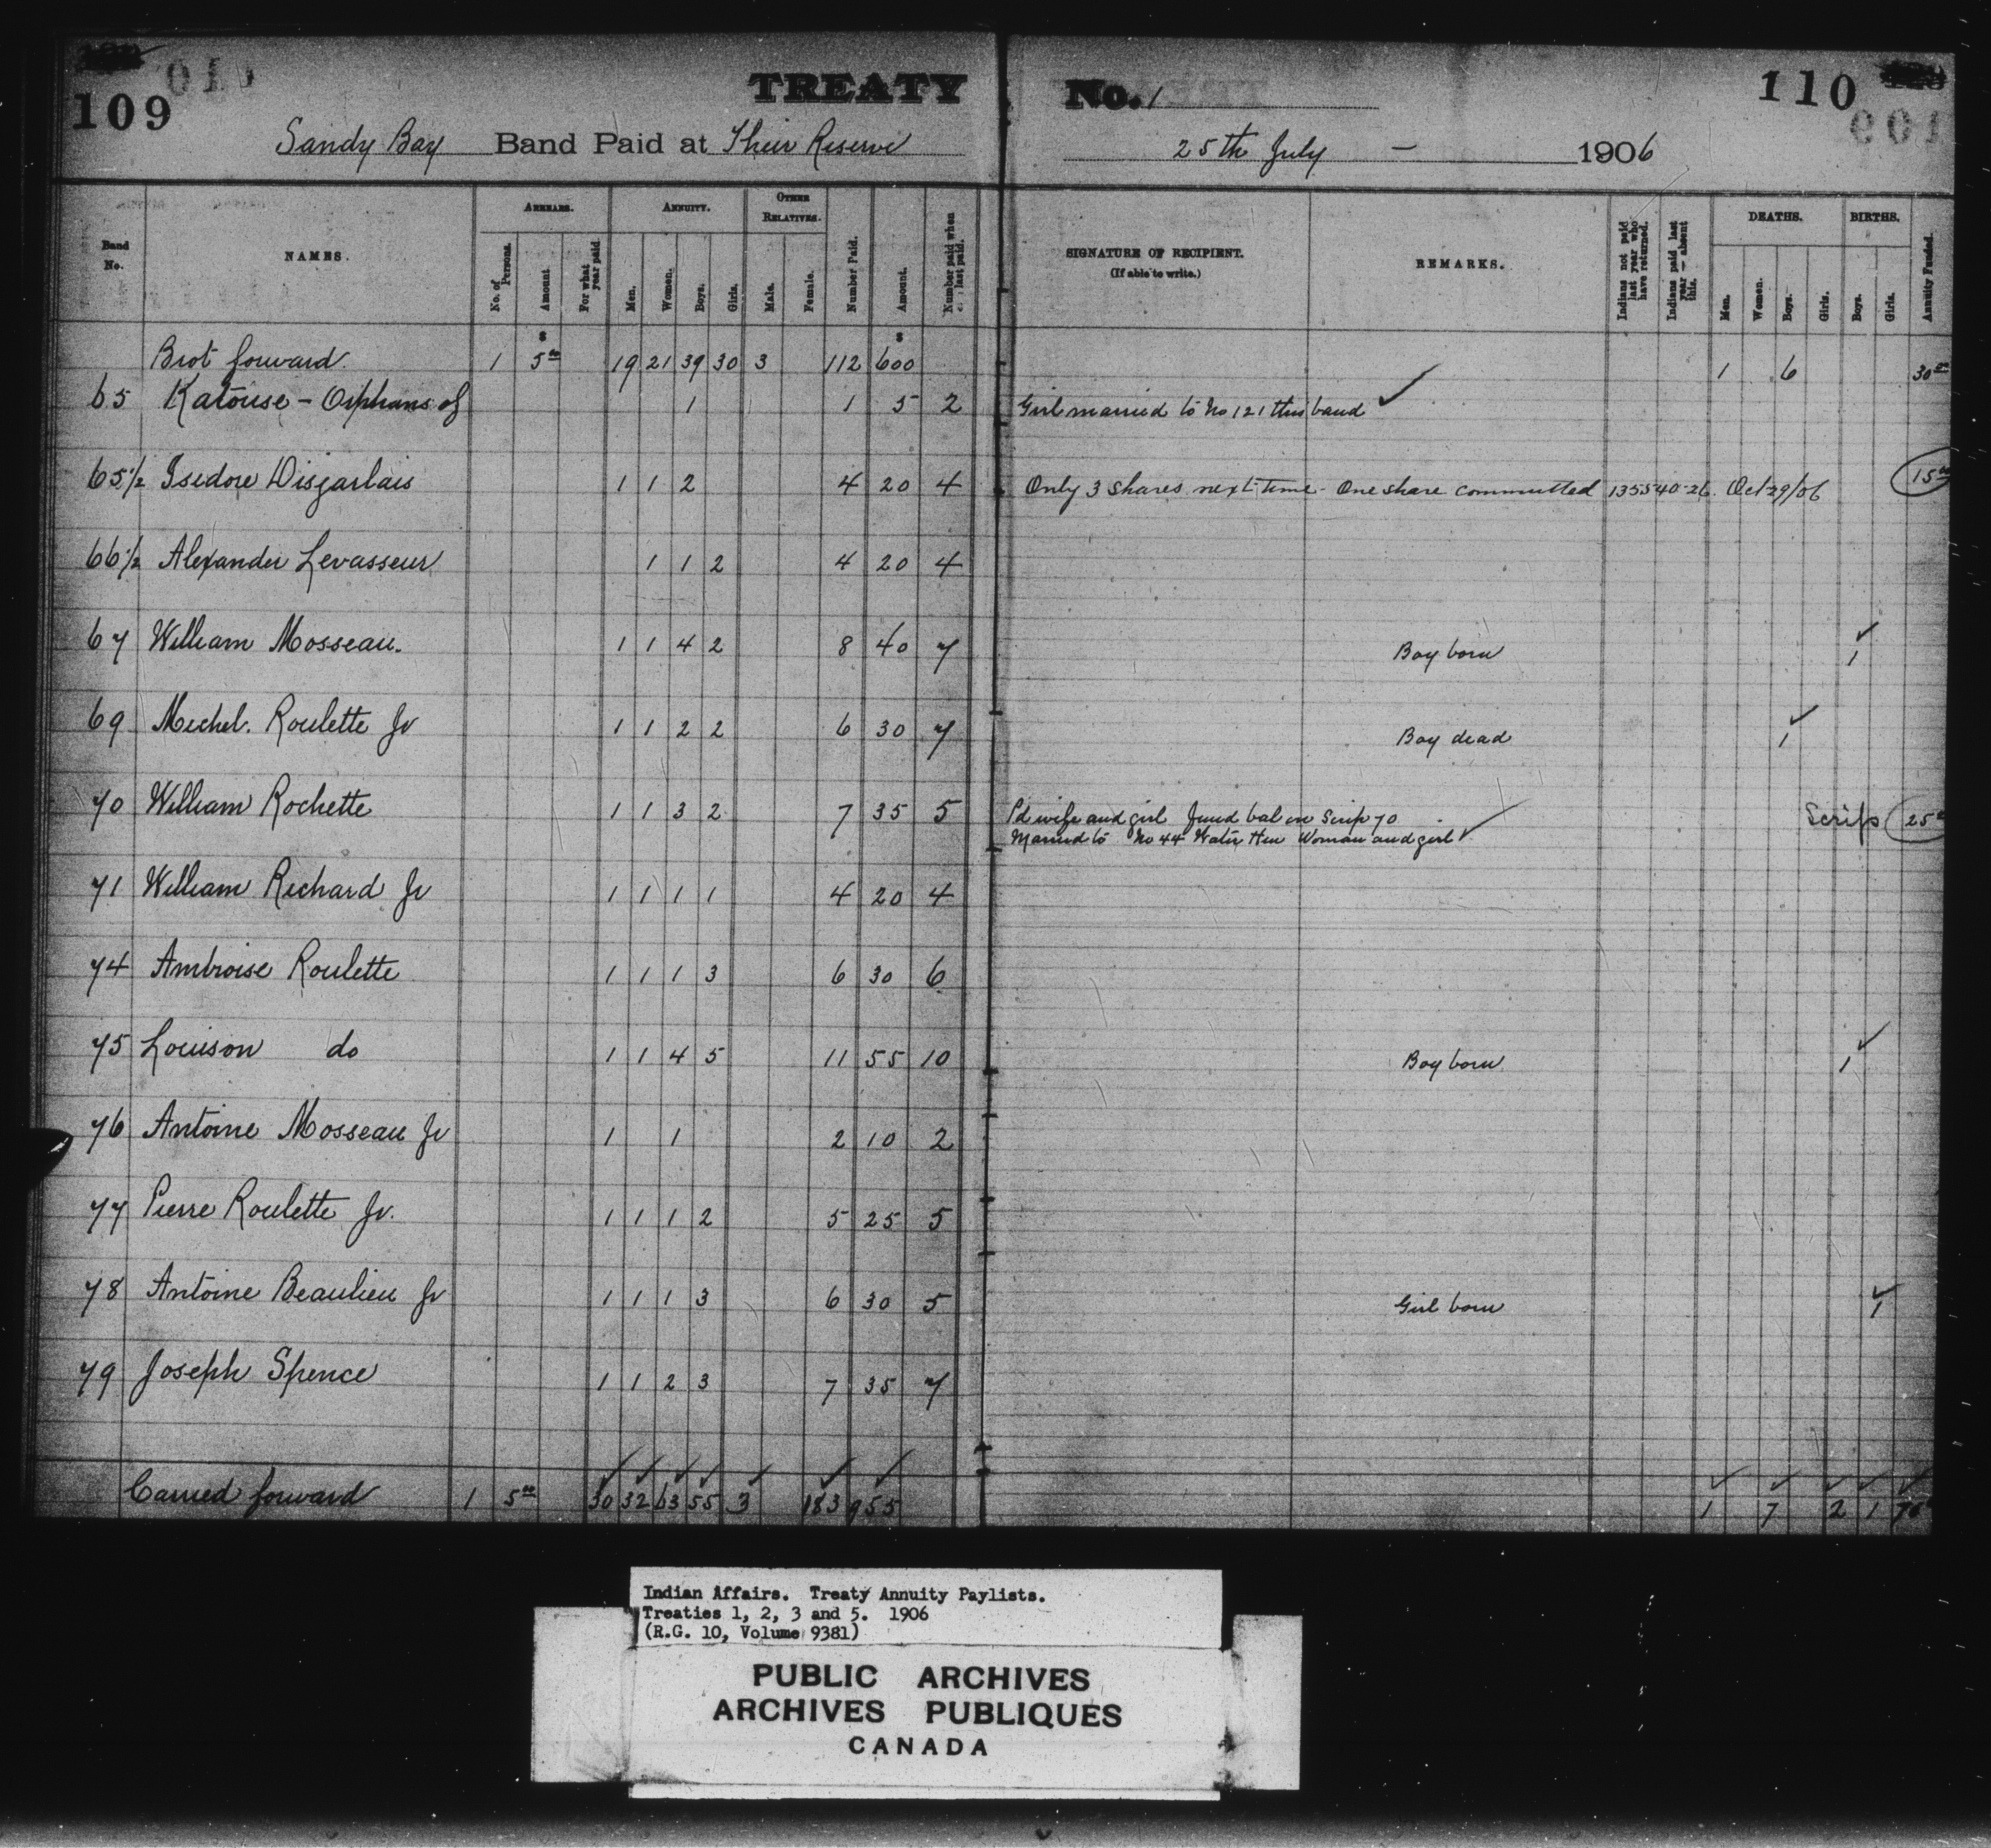 109
TREATY No. 1
110
Sandy Bay Band Paid at Their Reserve 25th July - 1906
Band No.
NAMES.
ARREARS.
No. of Persons.
Amount
For what year paid.
ANNUITY.
Men.
Women.
Boys.
Girls.
OTHER RELATIVES.
Male.
Female.
Number Paid.
Amount.
Number paid when last paid.
SIGNATURE OF RECIPIENT.
(If able to write.)
REMARKS.
Indians not paid last year who have returned.
Indians paid last year - absent this.
DEATHS.
Men.
Women.
Boys.
Girls.
BIRTHS.
Boys.
Girls.
Annuity Funded.
$ $
Brot forward 1 5 00 19 21 39 30 3 112 600 1 6 30 00
65 Katouse - Orphans of 1 1 5 2 Girl married to No 121 this band ✓
65 1/2 Isidore Disjarlais 1 1 2 4 20 4 Only 3 shares next time - One share commuted 135540-26. Oct 29/06 15 00
66 1/2 Alexander Levasseur 1 1 2 4 20 4
67 William Mosseau. 1 1 4 2 8 40 7 Boy born 1 ✓
69 Michel. Roulette Jr 1 1 2 2 6 30 7 Boy dead 1 ✓
70 William Rochette 1 1 3 2 7 35 5 Pd wife and girl fund bal in Scrip 70 Scrip 25
Married to No 44 Water Hen Woman and girl ✓
71 William Richard Jr 1 1 1 1 4 20 4
74 Ambroise Roulette 1 1 1 3 6 30 6
75 Louison do 1 1 4 5 11 55 10 Boy born 1 ✓
76 Antoine Mosseau Jr 1 1 2 10 2
77 Pierre Roulette Jr. 1 1 1 2 5 25 5
78 Antoine Beaulieu Jr 1 1 1 3 6 30 5 Girl born 1 ✓
79 Joseph Spence 1 1 2 3 7 35 7
Carried forward 1 5 00 30 32 63 55 3 183 955 1 7 2 1 70
Indian Affairs. Treaty Annuity Paylists.
Treaties 1, 2, 3 and 5. 1906
(R.G. 10, Volume 9381)
PUBLIC ARCHIVES
ARCHIVES PUBLIQUES
CANADA